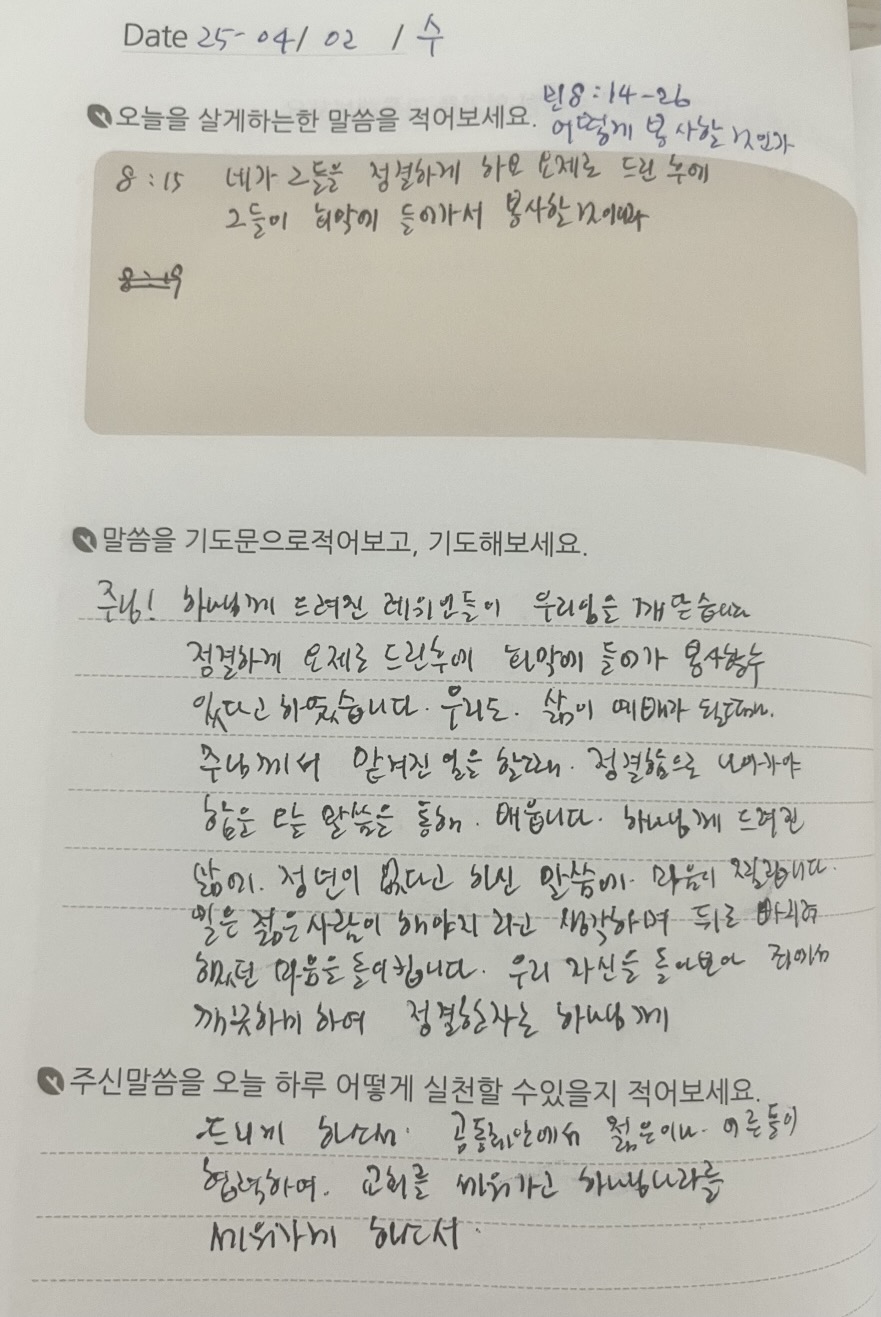 Date 25-04/02 / 수
민8:14-26
오늘을 살게하는한 말씀을 적어보세요.
어떻게 봉사할 것인가
8:15 네가 그들을 정결하게 하여 요제로 드린 후에
그들이 회막에 들어가서 봉사할 것이라
8:19
말씀을 기도문으로적어보고, 기도해보세요.
주님! 하나님께 드려진 레위인들이 우리임을 깨닫습니다
정결하게 요제로 드린후에 회막에 들어가 봉사할수
있다고 하였습니다. 우리도. 삶이 예배가 될때.
주님께서 맡겨진 일을 할때. 정결함으로 나아가야
함을 오늘 말씀을 통해. 배웁니다. 하나님께 드려진
삶에. 정년이 없다고 하신 말씀에. 마음이 찔립니다.
일은 젊은사람이 해야지 라고 생각하며 뒤로 빠지려
했던 마음을 돌이킵니다. 우리 자신을 돌아보아 죄에서
깨끗하게 하여 정결한자로 하나님께
주신말씀을 오늘 하루 어떻게 실천할 수있을지 적어보세요.
드리게 하소서. 공동체안에서 젊은이나. 어른들이
협력하여. 교회를 세워가고 하나님나라를
세워가게 하소서.